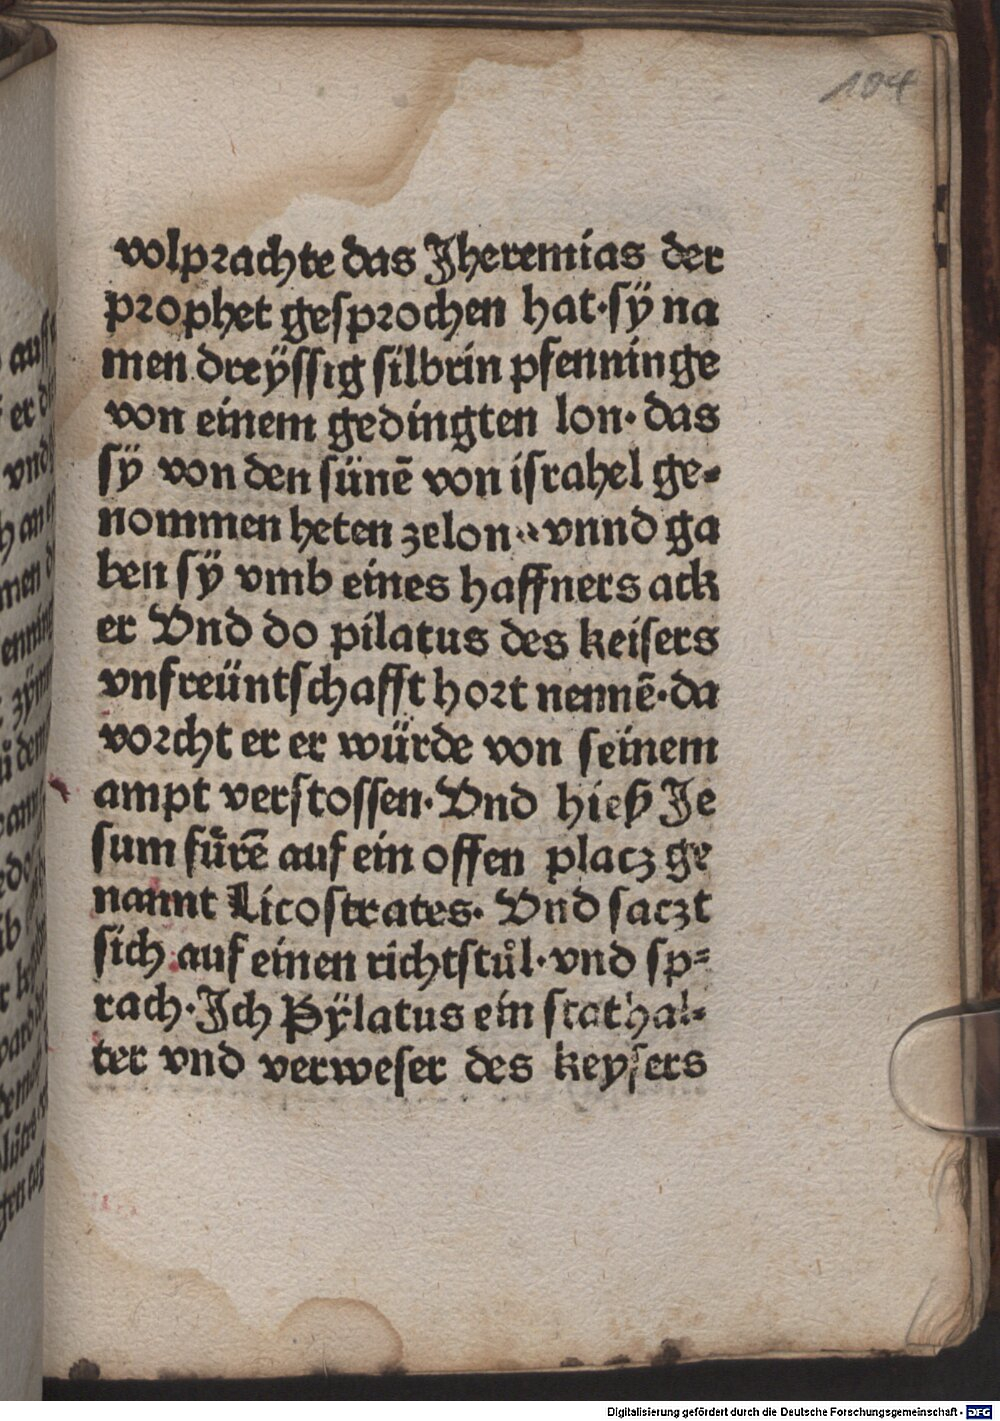 104
volprachte das Jheremias der
prophet gesprochen hat·sÿ na
men dreÿssig silbrin pfenninge
von einem gedingten lon·das
sÿ von den sünē von israhel ge-
nommen heten zelon·vnnd ga
ben sÿ vmb eines haffners ack
er Vnd do pilatus des keisers
vnfreüntschafft hort nennē·da
vorcht er er würde von seinem
ampt verstossen·Vnd hieß Je
sum fürē auf ein offen placz ge
nannt Licostrates·Vnd saczt
sich auf einen richtstůl·vnd sp=
rach·Jch Pÿlatus ein stathal-
ter vnd verweser des keysers
Digitalisierung gefördert durch die Deutsche Forschungsgemeinschaft - DFG